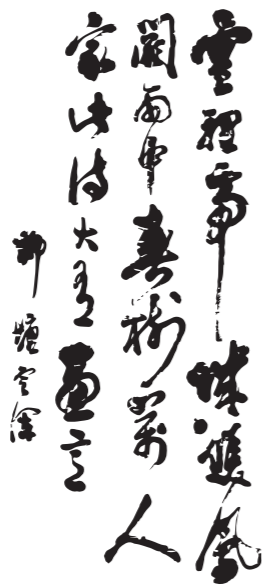 雲裡帝城雙鳳
闕雨中春樹萬人
家此詩大有畫意